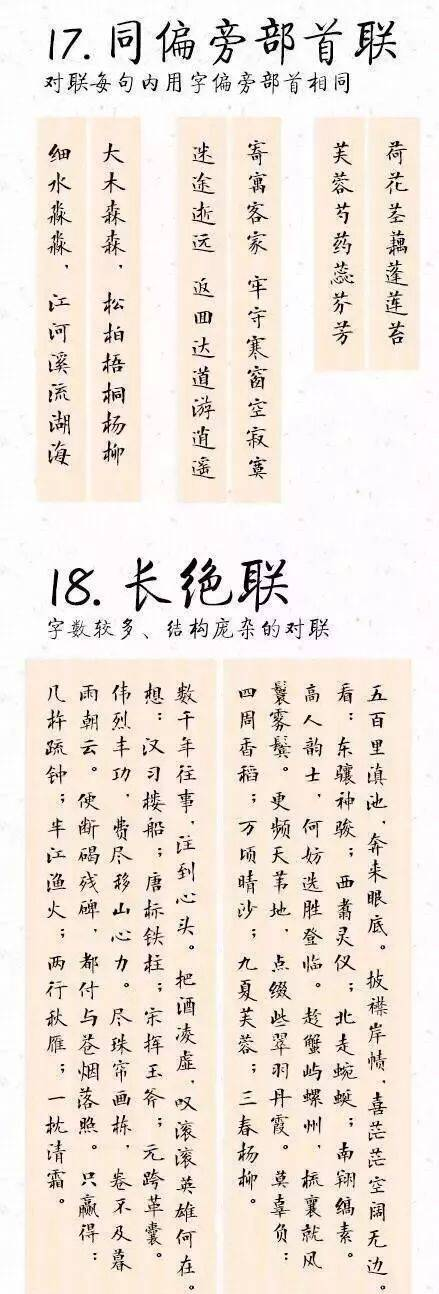 17.同偏旁部首联
对联每句内用字偏旁部首相同
荷花茎藕蓬莲苔
芙蓉芍药蕊芬芳
寄寓客家 牢守寒窗空寂寞
迷途逝远 返回达道游逍遥
大木森森，松柏梧桐杨柳
细水淼淼，江河溪流湖海
18.长绝联
字数较多、结构庞杂的对联
五百里滇池，奔来眼底。披襟岸帻，喜茫茫空阔无边。
看：东骧神骏；西翥灵仪；北走蜿蜒；南翔缟素。
高人韵士，何妨选胜登临。趁蟹屿螺州，梳裹就风
鬟雾鬓。更频天苇地，点缀些翠羽丹霞。莫辜负：
四周香稻；万顷晴沙；九夏芙蓉；三春杨柳。
数千年往事，注到心头。把酒凌虚，叹滚滚英雄何在。
想：汉习楼船；唐标铁柱；宋挥玉斧；元跨革囊。
伟烈丰功，费尽移山心力。尽珠帘画栋，卷不及暮
雨朝云。便断碣残碑，都付与苍烟落照。只赢得：
几杵疏钟；半江渔火；两行秋雁；一枕清霜。